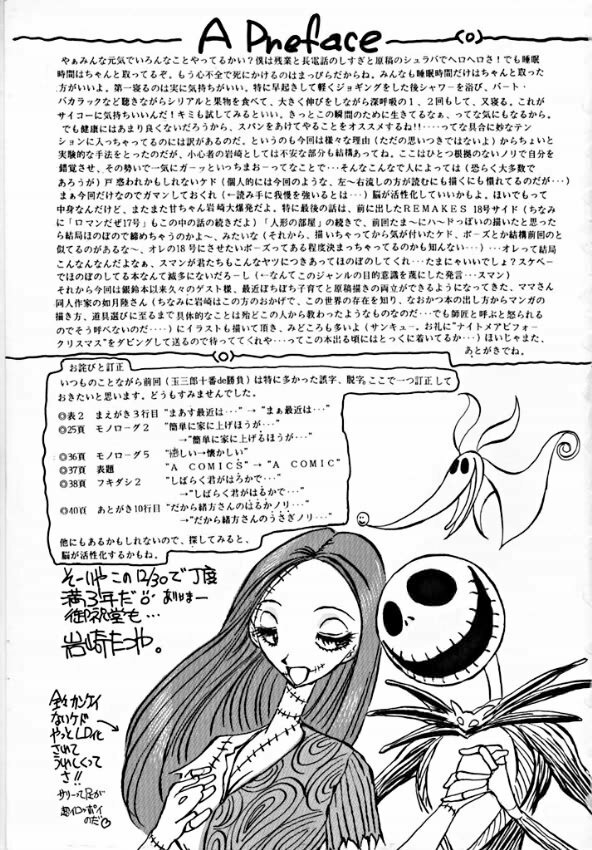 A Preface
やぁみんな元気でいろんなことやってるかい？僕は残業と長電話のしすぎと原稿のシュラバでヘロヘロさ！でも睡眠
時間はちゃんと取ってるぞ。もう心不全で死にかけるのはまっぴらだからね。みんなも睡眠時間だけはちゃんと取った
方がいいよ。第一寝るのは実に気持ちがいい。特に早起きして軽くジョギングをした後シャワーを浴び、バート・
バカラックなど聴きながらシリアルと果物を食べて、大きく伸びをしながら深呼吸の１、２回もして、又寝る。これが
サイコーに気持ちいいんだ！キミも試してみるといい。きっとこの瞬間のために生きてるなぁ、ってな気にもなるから。
でも健康にはあまり良くないだろうから、スパンをあけてやることをオススメするね!!････ってな具合に妙なテン
ションに入っちゃってるのには訳があるのだ。というのも今回は様々な理由（ただの思いつきではないよ）からちょいと
実験的な手法をとったのだが、小心者の岩崎としては不安な部分も結構あってね。ここはひとつ根拠のないノリで自分を
錯覚させ、その勢いで一気にガーッといっちまおーってなことで･･･そんなこんなで人によっては（恐らく大多数で
あろうが）戸惑われかもしれないケド（個人的には今回のような、左〜右流しの方が読むにも描くにも慣れてるのだが･･･）
まぁ今回だけなのでガマンしておくれ（←読み手に我慢を強いるとは･･･）脳が活性化していいかもよ。ほいでもって
中身なんだけど、またまた甘ちゃん岩崎大爆発だよ。特に最後の話は、前に出したＲＥＭＡＫＥＳ 18号サイド（ちなみ
に「ロマンだぜ17号」もこの中の話の続きだよ）「人形の部屋」の続きで、前回たま〜にハードっぽいの描いたと思った
ら結局ほのぼので締めるのかよ〜、みたいな（それから、描いちゃってから気が付いたケド、ポーズとか結構前回のと
似てるのがあるな〜、オレの18号にさせたいポーズってある程度決まっちゃってるのかも知んない）･･･オレって結局
こんなんなんだよなぁ、スマンが君たちもこんなヤツにつきあってほのぼのしてくれ･･･たまにゃいいでしょ？スケベー
でほのぼのしてる本なんて滅多にないだろーし（←なんてこのジャンルの目的意識を蔑にした発言･･･スマン）
それから今回は銀鈴本以来久々のゲスト様、最近ぼちぼち子育てと原稿描きの両立ができるようになってきた、ママさん
同人作家の如月陸さん（ちなみに岩崎はこの方のおかげで、この世界の存在を知り、なおかつ本の出し方からマンガの
描き方、道具選びに至るまで具体的なことは殆どこの人から教わったようなものなのだ･･･でも師匠と呼ぶと怒られる
のでそう呼べないのだ････）にイラストも描いて頂き、みどころも多いよ（サンキュー。お礼に“ナイトメアビフォー
クリスマス”をダビングして送るので待っててくれや･･･ってこの本出る頃にはとっくに着いてるか･･･）ほいじゃまた、
あとがきでね。
お詫びと訂正
いつものことながら前回（玉三郎十番de勝負）は特に多かった誤字、脱字、ここで一つ訂正して
おきたいと思います。どうもすみませんでした。
◎表２　まえがき３行目　“まあす最近は･･･”→“まぁ最近は･･･”
◎25頁　モノローグ２　“簡単に家に上げほうが･･･”
→“簡単に家に上げるほうが･･･”
◎36頁　モノローグ５　→懐かしい”
◎37頁　表題　“A COMICS”→“A COMIC”
◎38頁　フキダシ２　“しばらく君がはろかで･･･”
→“しばらく君がはるかで･･･”
◎40頁　あとがき10行目　“だから緒方さんのはるかノリ･･･”
→“だから緒方さんのうさぎノリ･･･”
他にもあるかもしれないので、探してみると、
脳が活性化するかもね。
そーいやこの12/30で丁度
満3年だ
御祝堂も…
岩崎たつや。
全々カンケイ
ないケド
やっとLD化
されて
うれしくって
さ!!
サリーって足が
のだ